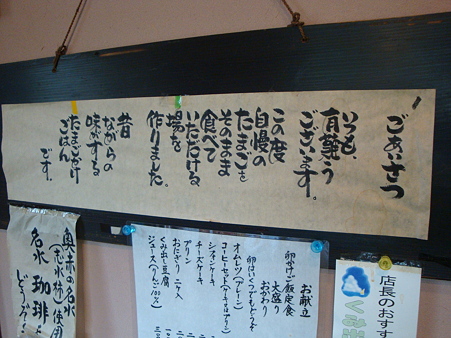 ごあいさつ
いつも、
有難う
ございます。
この度
自慢の
たまごを
そのまま
食べて
いただける
場を
作りました。
昔
ながらの
味がする
たまごかけ
ごはん
です。
奥赤の名水
使用
名水珈琲
どうぞ
お献立
卵かけご飯定食
大盛り
おかわり
卵はいくつでもどうぞ
オムーツ(プレーン)
コーヒーセット
シフォンケーキ
チーズケーキ
プリン
おにぎり 二ヶ入
くみ出し豆腐
ジュース(りんご100%)
店長のおすす